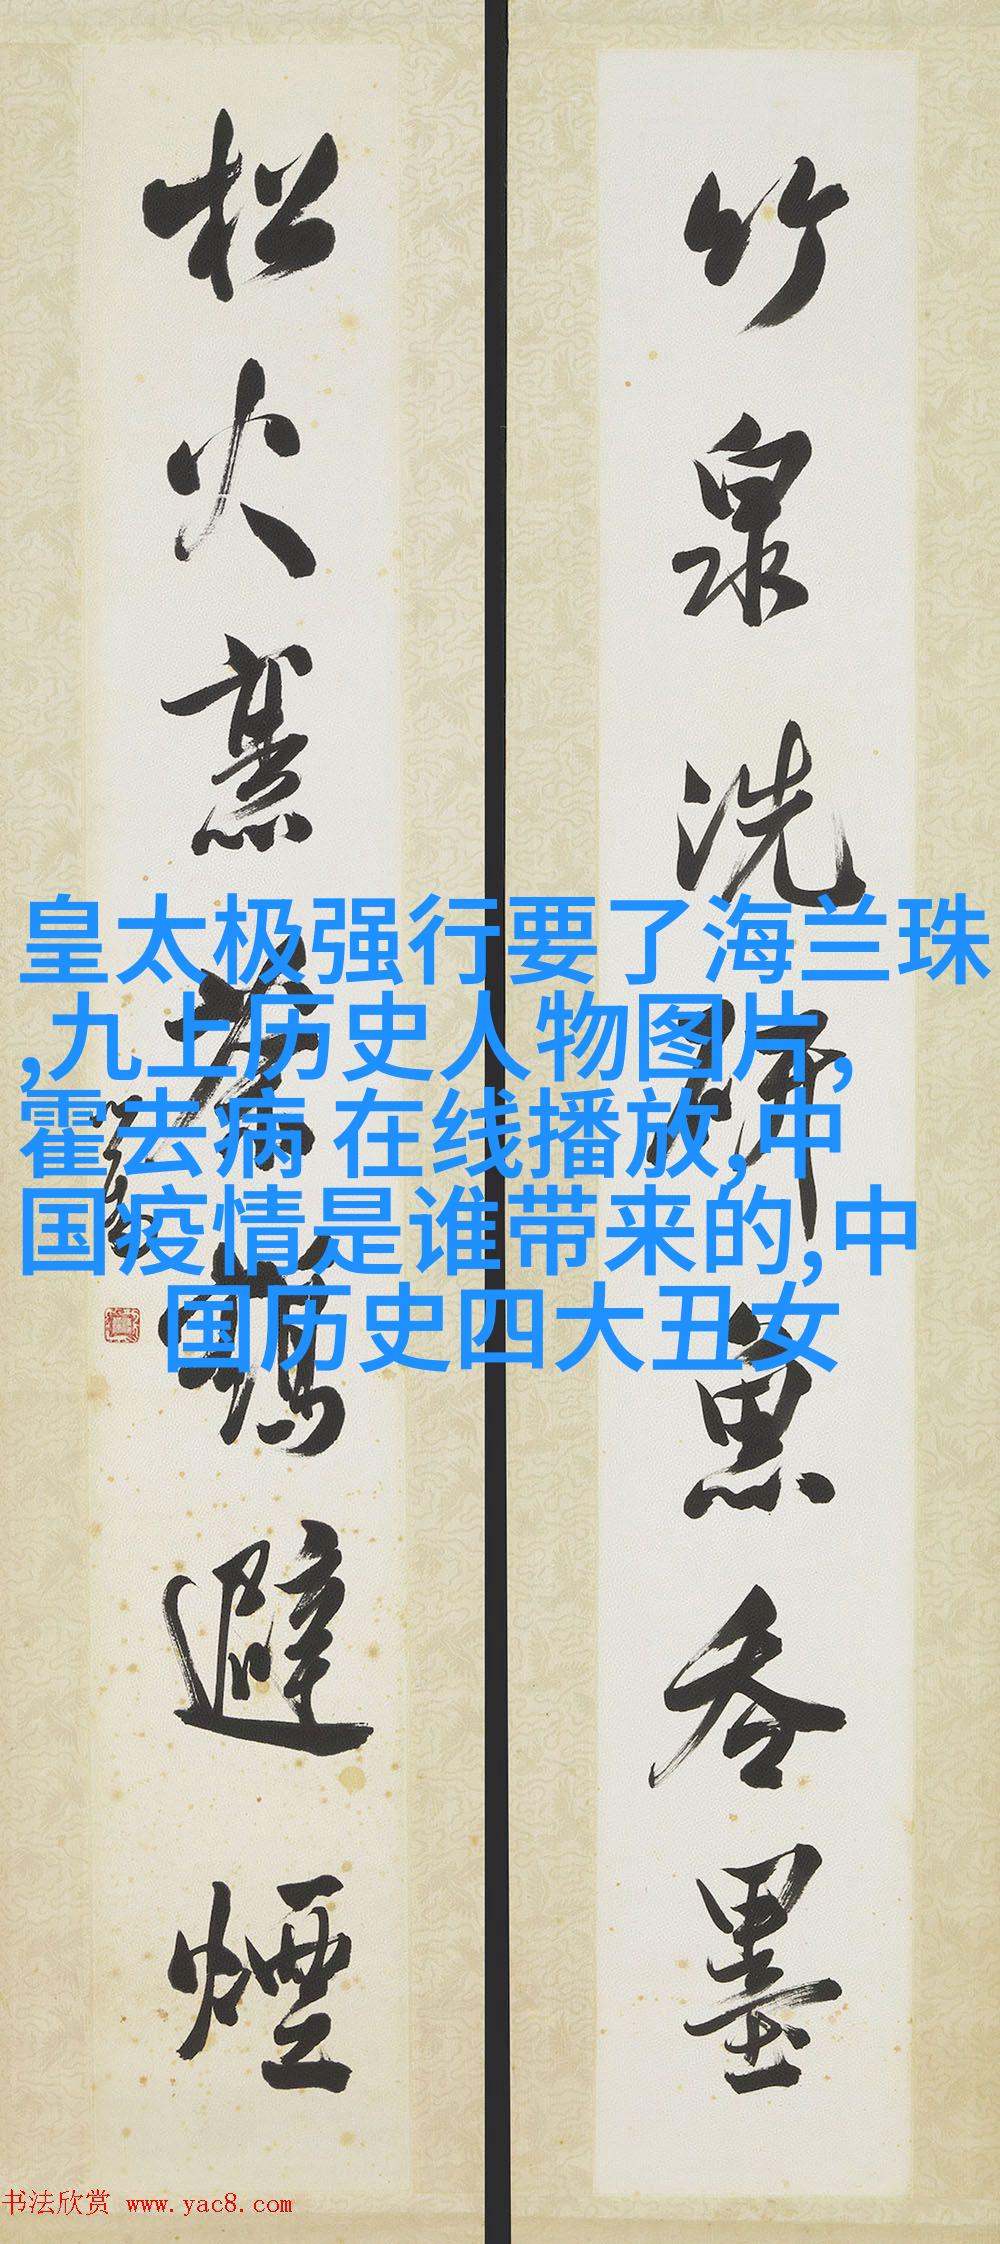 竹泉洗研魚吞墨
松火烹茶鶴避煙
皇太极强行要了海兰珠
,九上历史人物图片,
霍去病 在线播放,中
国疫情是谁带来的,中
国历史四大丑女
书法欣赏 www.yac8.com